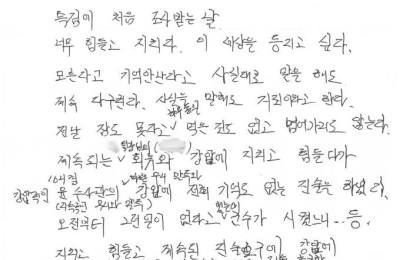 특검에 처음 조사받는 날
너무 힘들고 지치다. 이 세상을 등지고 싶다.
모른다고 기억안난다고 사실대로 말을 해도
계속 다그친다. 사실을 말해도 거짓이라고 한다.
하루 종일
전날 잠도 못자고 먹은 것도 없고 넘어가지도 않는다.
계속되는 회유와 강압에 지치고 힘들다가
강압적인
수사관의 강압에 전혀 기억도 없는 진술을 하였다.
오전부터 그런일이 없다고
지치고 힘들고 계속된 진술요구에 강압에